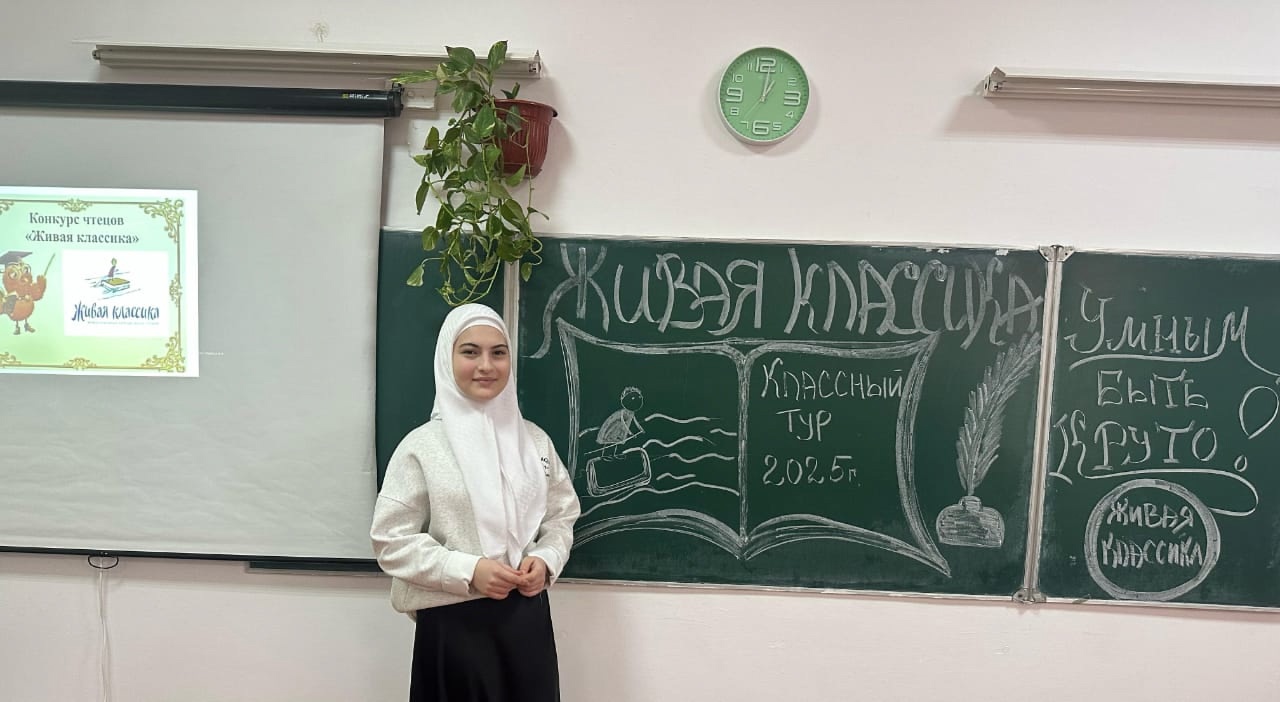 Конкурс чтецов
«Живая классика»
Живая классика
ЖИВАЯ КЛАССИКА
КЛАССНЫЙ
ТУР
2025г.
УМНЫМ
БЫТЬ
КРУТО
ЖИВАЯ
КЛАССИКА
12
1
2
3
4
5
6
7
8
9
10